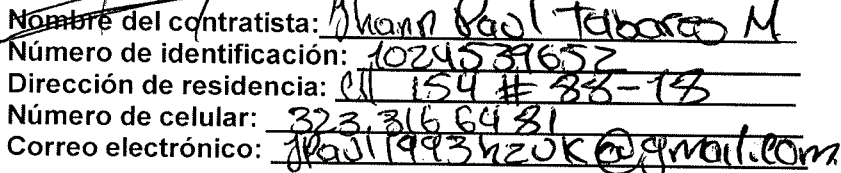 Nombre del contratista: Jhann Paul Tabarco M
Número de identificación: 1024539652
Dirección de residencia: Cll 154 # 88-18
Número de celular: 323 316 64 81
Correo electrónico: @gmail.com